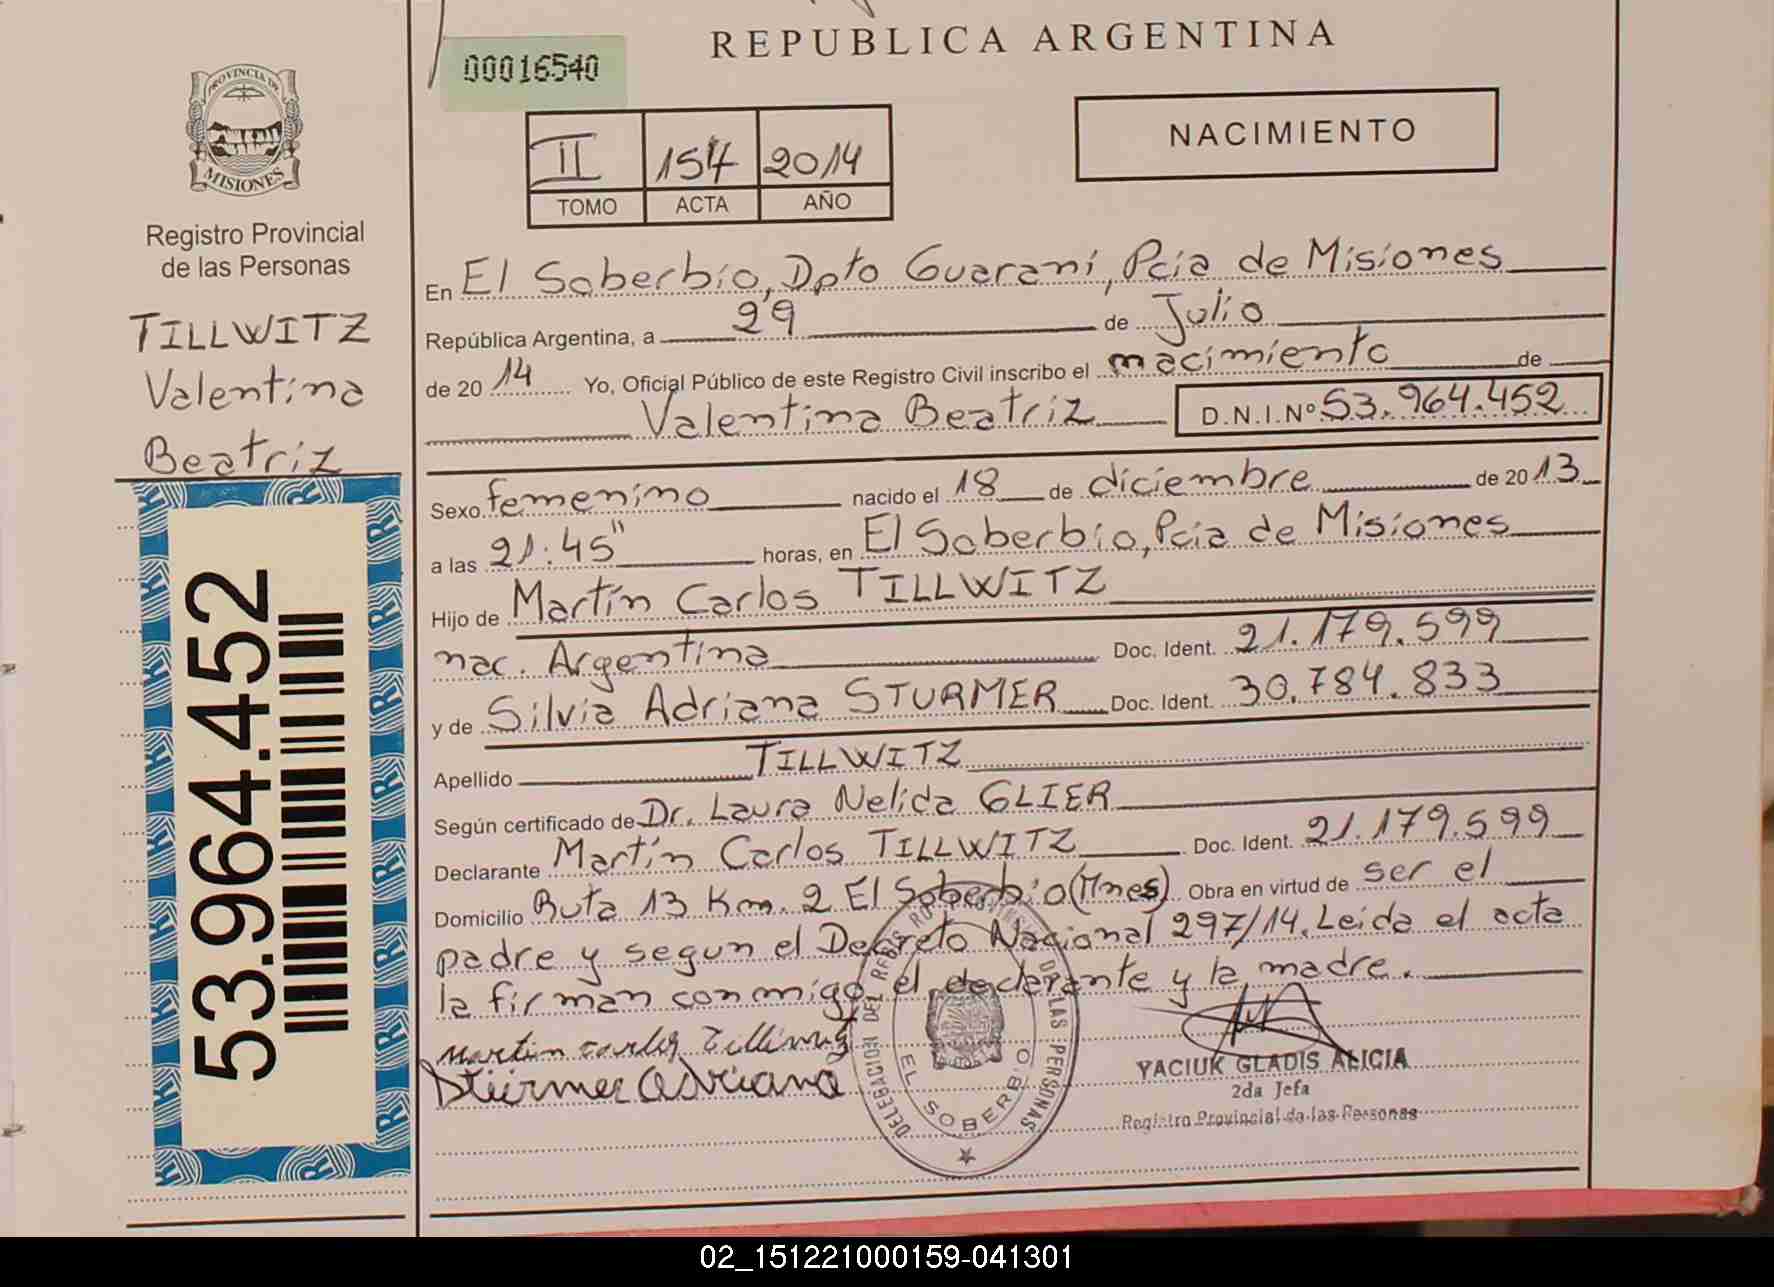 REPUBLICA ARGENTINA
00016540
NACIMIENTO
II 154 2014
TOMO ACTA AÑO
PROVINCIA DE MISIONES
Registro Provincial
de las Personas
TILLWITZ
Valentina
Beatriz
53.964.452
En El Soberbio, Dpto Guaraní, Pcia de Misiones
República Argentina, a 29 de Julio
de 20 14 Yo, Oficial Público de este Registro Civil inscribo el nacimiento de
Valentina Beatriz D.N.I.Nº 53.964.452
Sexo femenino nacido el 18 de diciembre de 20 13
a las 21:45" horas, en El Soberbio, Pcia de Misiones
Hijo de Martín Carlos TILLWITZ
nac. Argentina Doc. Ident. 21.179.599
y de Silvia Adriana STURMER Doc. Ident. 30.784.833
Apellido TILLWITZ
Según certificado de Dr. Laura Nelida GLIER
Declarante Martín Carlos TILLWITZ Doc. Ident. 21.179.599
Domicilio Ruta 13 Km. 2 El Soberbio (Mnes) Obra en virtud de ser el
padre y segun el Decreto Nacional 297/14. Leida el acta
la firman conmigo el declarante y la madre.
Martin Carlos
Stürmer Adriana
DELEGACION DEL REGISTRO DE LAS PERSONAS
EL SOBERBIO
YACIUK GLADIS ALICIA
2da Jefa
Registro Provincial de las Personas
02_151221000159-041301